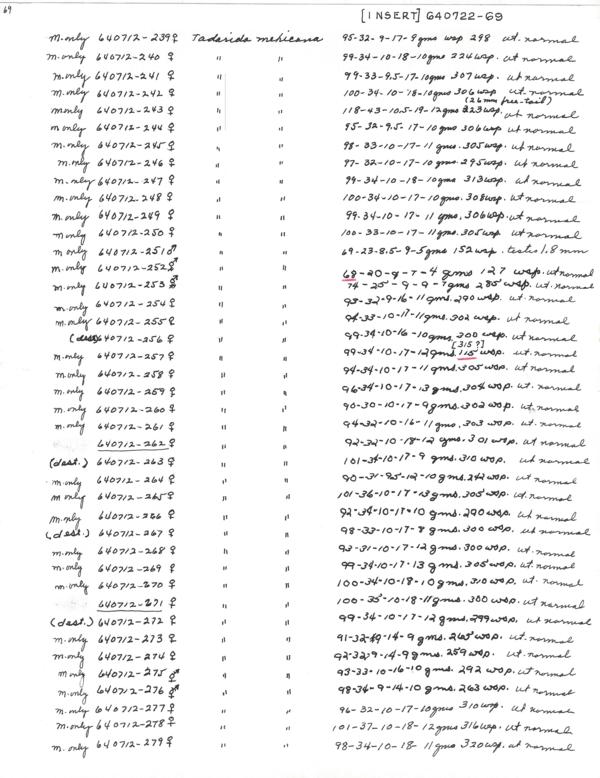 69
[INSERT] 640722-69
m.only 640712-239♀ Tadarida mexicana 95-32-9-17-9gms wsp 298 ut. normal
m.only 640712-240 ♀ " " 99-34-10-18-10gms 224 wsp. ut normal
m.only 640712-241 ♀ " " 99-33-9.5-17-10gms 307 wsp. ut normal
m.only 640712-242 ♀ " " 100-34-10-18-10gms 306 wsp ut. normal
(26mm free-tail)
m.only 640712-243 ♀ " " 118-43-10.5-19-12gms 323 wsp. ut normal
m only 640712-244 ♀ " " 95-32-9.5-17-10gms 306 wsp ut normal
m.only 640712-245 ♀ " " 98-33-10-17-11 gms. 305 wsp. ut normal
m.only 640712-246 ♀ " " 97-32-10-17-10gms. 295 wsp. ut normal
m.only 640712-247 ♀ " " 99-34-10-18-10gms 313 wsp. ut normal
m.only 640712-248 ♀ " " 100-34-10-17-10gms. 308 wsp. ut. normal
m.only 640712-249 ♀ " " 99-34-10-17-11 gms. 306 wsp. ut normal
m only 640712-250 ♀ " " 100-33-10-17-11gms. 305 wsp ut. normal
m only 640712-251 ♂ " " 69-23-8.5-9-5gms 152 wsp. testis 1.8 mm
m.only 640712-252 " " 68-20-9-7-4 gms 127 wsp. ut normal
m.only 640712-253 " " 74-25-9-9-7gms 285 wsp. ut. normal
m.only 640712-254 ♀ " " 93-32-9-16-11gms. 290 wsp. ut normal
m.only 640712-255 ♀ " " 94-33-10-17-11gms. 302 wsp. ut normal
(dest.) 640712-256 ♀ " " 99-34-10-16-10gms. 300 wsp. ut normal
[315?]
m.only 640712-257 ♀ " " 99-34-10-17-12gms. 115 wsp. ut normal
m.only 640712-258 ♀ " " 94-34-10-17-11 gms. 305 wsp. ut normal
m.only 640712-259 ♀ " " 96-34-10-17-13 gms. 304 wsp. ut normal
m.only 640712-260 ♀ " " 90-30-10-17-9 gms. 302 wsp. ut normal
m.only 640712-261 ♀ " " 94-32-10-16-11 gms. 303 wsp. ut normal
640712-262 ♀ " " 92-32-10-18-12 gms. 301 wsp. ut normal
(dest.) 640712-263 ♀ " " 101-34-10-17-9 gms. 310 wsp. ut normal
m.only 640712-264 ♀ " " 90-31-9.5-12-10gms. 242 wsp. ut normal
m only 640712-265 ♀ " " 101-36-10-17-13gms. 305 wsp. ut normal
m.only 640712-266 ♀ " " 92-34-10-17-10 gms. 290 wsp. ut normal
(dest.) 640712-267 ♀ " " 98-33-10-17-8 gms. 300 wsp. ut normal
m.only 640712-268 ♀ " " 93-31-10-17-12 gms. 300 wsp. ut. normal
m.only 640712-269 ♀ " " 99-34-10-17-13 gms. 305 wsp. ut. normal
m.only 640712-270 ♀ " " 100-34-10-18-10gms. 310 wsp. ut. normal
640712-271 ♀ " " 100-35-10-18-11gms. 300 wsp. ut normal
(dest.) 640712-272 ♀ " " 99-34-10-17-12gms. 299 wsp. ut. normal
m.only 640712-273 ♀ " " 91-32-9-14-9 gms. 265 wsp. ut. normal
m.only 640712-274 ♀ " " 92-32-9-14-9gms. 259 wsp. ut. normal
m.only 640712-275 " " 93-33-10-16-10 gms. 292 wsp. ut normal
m.only 640712-276 " " 98-34-9-14-10 gms. 263 wsp. ut normal
m.only 640712-277 ♀ " " 96-32-10-17-10gms 310 wsp. ut normal
m.only 640712-278 ♀ " " 101-37-10-18-12 gms 316 wsp. ut normal
m.only 640712-279 ♀ " " 98-34-10-18-11 gms 320 wsp. ut normal